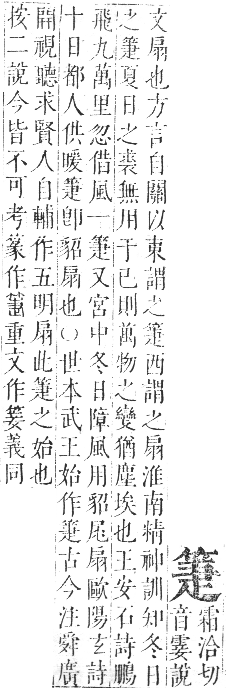 箑
霜洽切
音霎說
文扇也方言自關以東謂之箑西謂之扇淮南精神訓知冬日
之箑夏日之裘無用于己則萬物之變猶塵埃也王安石詩鵬
飛九萬里忽借風一箑又宮中冬日障風用貂尾扇歐陽玄詩
十日都人供暖箑卽貂扇也○世本武王始作箑古今注舜廣
開視聽求賢人自輔作五明扇此箑之始也
按二說今皆不可考篆作重文作䈉義同